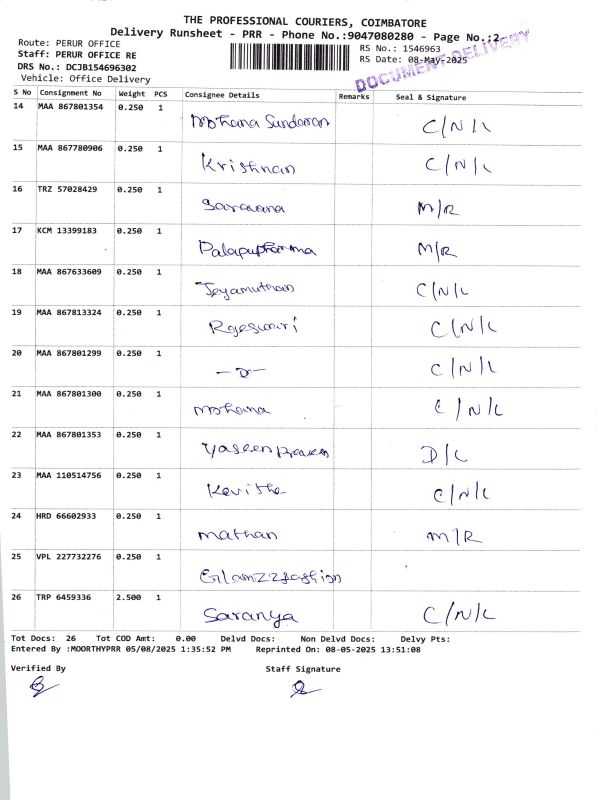 THE PROFESSIONAL COURIERS, COIMBATORE
Delivery Runsheet - PRR - Phone No.:9047080280 - Page No.:2
Route: PERUR OFFICE
Staff: PERUR OFFICE RE
DRS No.: DCJB154696302
Vehicle: Office Delivery
RS No.: 1546963
RS Date: 08-May-2025
DOCUMENT DELIVERY
S No Consignment No Weight PCS Consignee Details Remarks Seal & Signature
14 MAA 867801354 0.250 1 Mohana Sundaran C/N/L
15 MAA 867780906 0.250 1 Krishnan C/N/L
16 TRZ 57028429 0.250 1 Saravana M/R
17 KCM 13399183 0.250 1 M/R
18 MAA 867633609 0.250 1 Jeyamuthan C/N/L
19 MAA 867813324 0.250 1 Rgeswari C/N/L
20 MAA 867801299 0.250 1 C/N/L
21 MAA 867801300 0.250 1 Mohana C/N/L
22 MAA 867801353 0.250 1 Yaseen D/L
23 MAA 110514756 0.250 1 Kavitha C/N/L
24 HRD 66602933 0.250 1 Mathan M/R
25 VPL 227732276 0.250 1 Glamzzfashion
26 TRP 6459336 2.500 1 Saranya C/N/L
Tot Docs: 26 Tot COD Amt: 0.00 Delvd Docs: Non Delvd Docs: Delvy Pts:
Entered By :MOORTHYPRR 05/08/2025 1:35:52 PM Reprinted On: 08-05-2025 13:51:08
Verified By Staff Signature